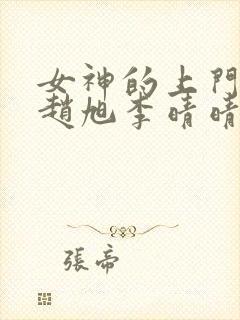 女神的上門
趙旭李晴晴
張帝